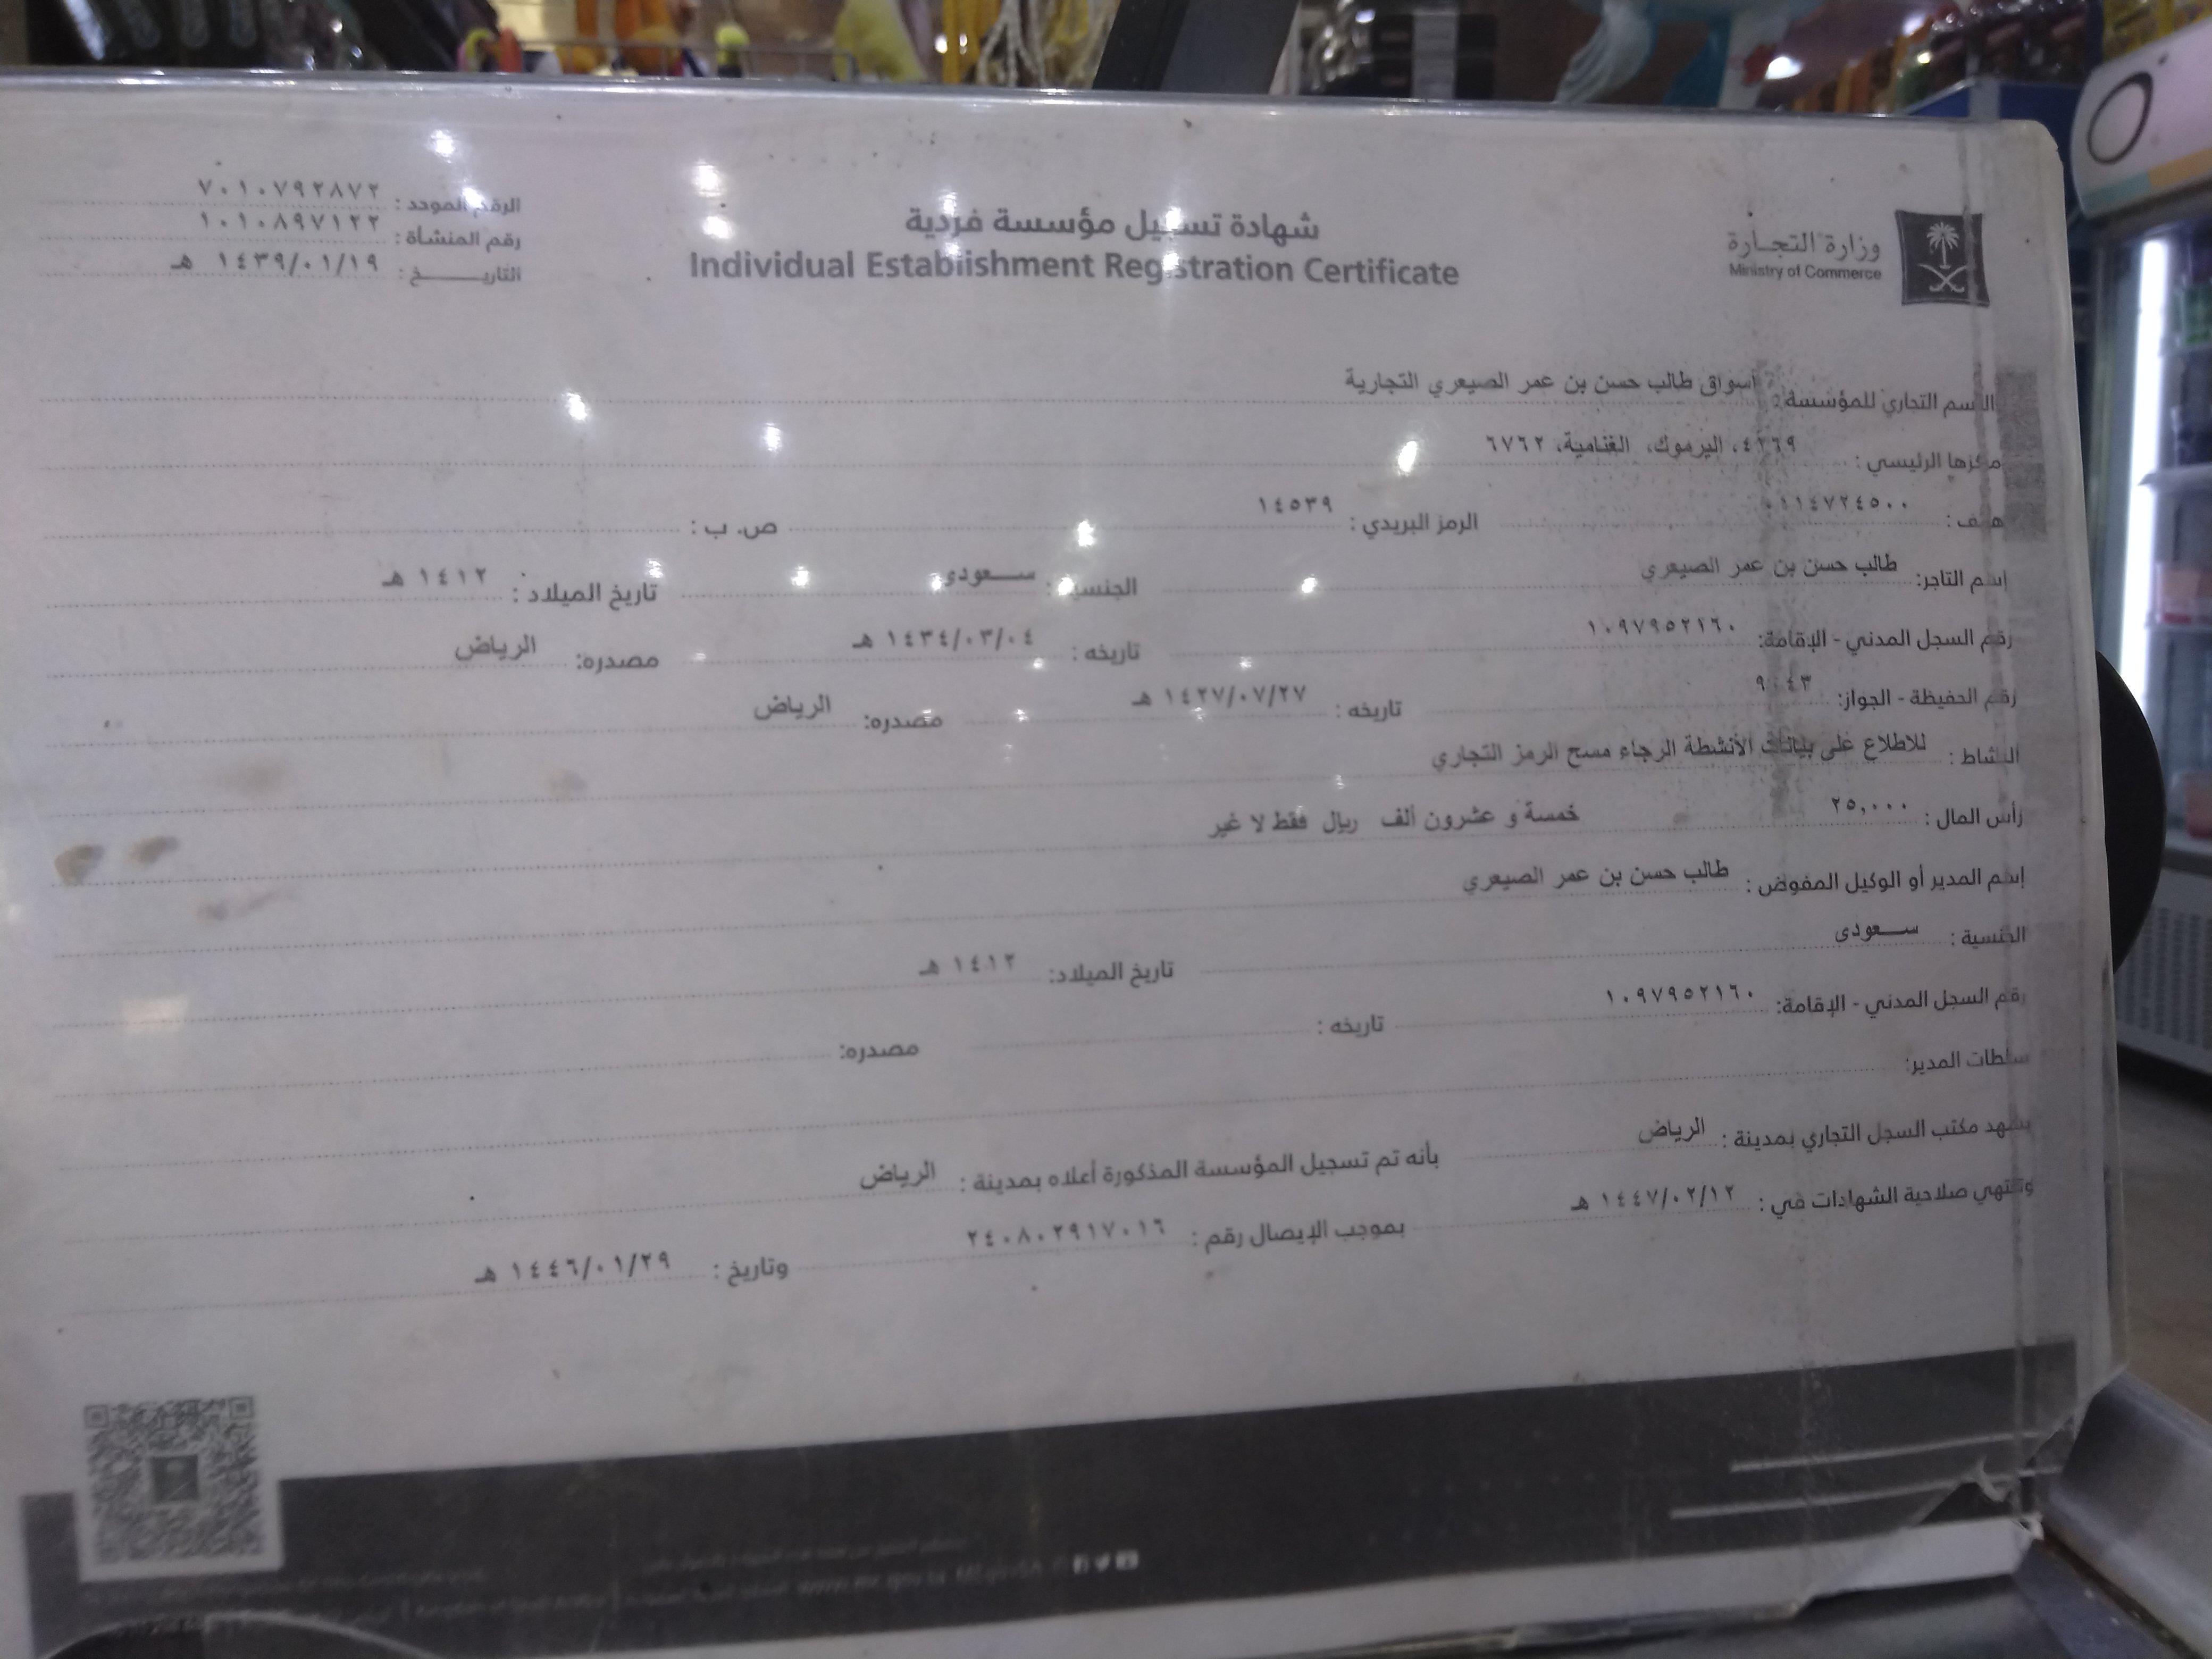 وزارة التجارة
Ministry of Commerce
شهادة تسجيل مؤسسة فردية
Individual Establishment Registration Certificate
الرقم الموحد : ٧٠١٠٧٩٢٨٧٢
رقم المنشاة : ١٠١٠٨٩٧١٢٢
التاريـــخ : ١٤٣٩/٠١/١٩ هـ
الاسم التجاري للمؤسسة : أسواق طالب حسن بن عمر الصيعري التجارية
مركزها الرئيسي : ٤٢٦٩، اليرموك، الغنامية، ٦٧٦٢
هاتف : ٠١١٤٧٢٤٥٠٠ الرمز البريدي : ١٤٥٣٩ ص. ب :
إسم التاجر: طالب حسن بن عمر الصيعري الجنسية : سعودى تاريخ الميلاد : ١٤١٢ هـ
رقم السجل المدني - الإقامة: ١٠٩٧٩٥٢١٦٠ تاريخه : ١٤٣٤/٠٣/٠٤ هـ مصدره: الرياض
رقم الحفيظة - الجواز: ٩٠٤٣ تاريخه : ١٤٢٧/٠٧/٢٧ هـ مصدره: الرياض
النشاط : للاطلاع على بيانات الأنشطة الرجاء مسح الرمز التجاري
رأس المال : ٢٥,٠٠٠ خمسة و عشرون ألف ريال فقط لا غير
إسم المدير أو الوكيل المفوض : طالب حسن بن عمر الصيعري
الجنسية : سعودى تاريخ الميلاد: ١٤١٢ هـ
رقم السجل المدني - الإقامة: ١٠٩٧٩٥٢١٦٠ تاريخه : مصدره:
سلطات المدير:
يشهد مكتب السجل التجاري بمدينة : الرياض بأنه تم تسجيل المؤسسة المذكورة أعلاه بمدينة : الرياض
وتنتهي صلاحية الشهادات في : ١٤٤٧/٠٢/١٢ هـ بموجب الإيصال رقم : ٢٤٠٨٠٢٩١٧٠١٦ وتاريخ : ١٤٤٦/٠١/٢٩ هـ
www.mc.gov.sa